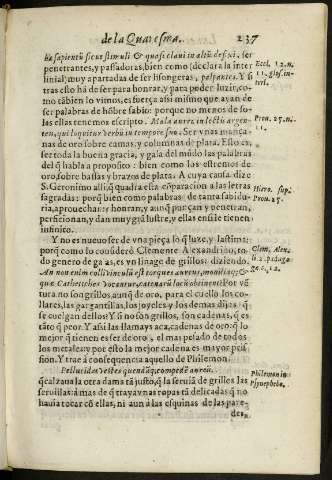 de la Quaresma. 237
ba sapientũ sicut stimuli & quasi claui in altũ defixi. ser
penetrantes, y passadoras, bien como (declara la inter
linial) muy apartadas de ser lisongeras, palpantes. Y si
tras esto hà de ser para honrar, y para poder luzir, co-
mo tãbien lo vimos, es fuerça assi mismo que ayan de
ser palabras de hõbre sabio: porque no menos de so-
las ellas tenemos escripto. Mala aurea in lectis argen-
teis, qui loquitur verbũ in tempore suo. Ser vnas mança-
nas de oro sobre camas, y columnas de plata. Esto es,
ser toda la buena gracia, y gala del mũdo las palabras
del q̃ habla a proposito: bien como los estremos de
oro sobre basas y brazos de plata. A cuya causa dize
S. Geronimo alli, q̃ quadra esta cõparacion a las letras
sagradas: porq̃ bien como palabras de tanta sabidu-
ria, aprouechan: y honran, y aunq̃ punçan y penetran,
perficionan, y dan muy grã lustre, y ellas en si le tienen
infinito.
Y no es nueuo ser de vna pieça lo q̃ luze, y lastima:
porq̃ como lo consideró Clemente Alexandrino, to
do genero de galas, es vn linage de grillos: diziendo.
An non enim colli vinculũ est torques aureus, monilia q; &
que Cathetteres vocantur, catenarũ locũ obtinent? Por vẽ
tura no son grillos aunq̃ de oro, para el cuello los co-
llares, las gargantillas, los joyeles y los demas dijes q̃
se cuelgan dellos? Y si no son grillos, son cadenas, q̃ es
tãto q̃ peor. Y assi las llamays aca, cadenas de oro. q̃ lo
mejor q̃ tienen es ser de oro, el mas pesado de todos
los metales: y por esto la mejor cadena es mayor pri-
sion. Y trae á consequencia aquello de Philemon.
Pellucidas vestes quendã q; compedẽ aureũ.
q̃ calzaua la otra dama tã justo, q̃ la seruiã de grillos las
seruillas: â mas de q̃ traya vnas ropas tã delicadas q̃ no
hauia tocar cõ ellas, ni aun â las esquinas de las pare-
des,
Eccl. 12. n.
11. glos. in-
terl.
Prou. 25. n.
11.
Hiero. sup.
Prou. 25.
Clem. Alex.
li. 2. pædago
ge. c. 12.
Philemon in
synephebo.